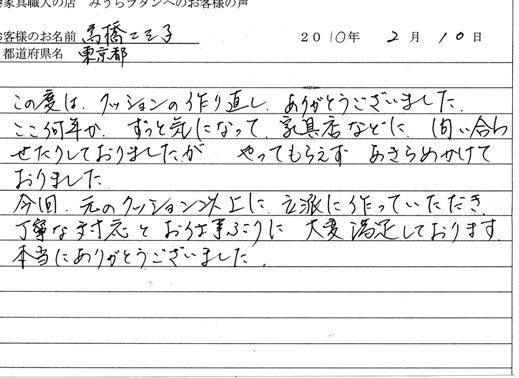 家具職人の店 みうらラタンへのお客様の声
お客様のお名前 高橋
2010年 2月 10日
都道府県名 東京都
この度は、クッションの作り直し、ありがとうございました。
ここ何年か、ずっと気になって、家具店などに、問い合わ
せたりしておりましたが やってもらえず あきらめかけて
おりました
今回、元のクッション以上に、立派に作っていただき、
丁寧な対応と お仕事ぶりに 大変満足しております。
本当にありがとうございました。